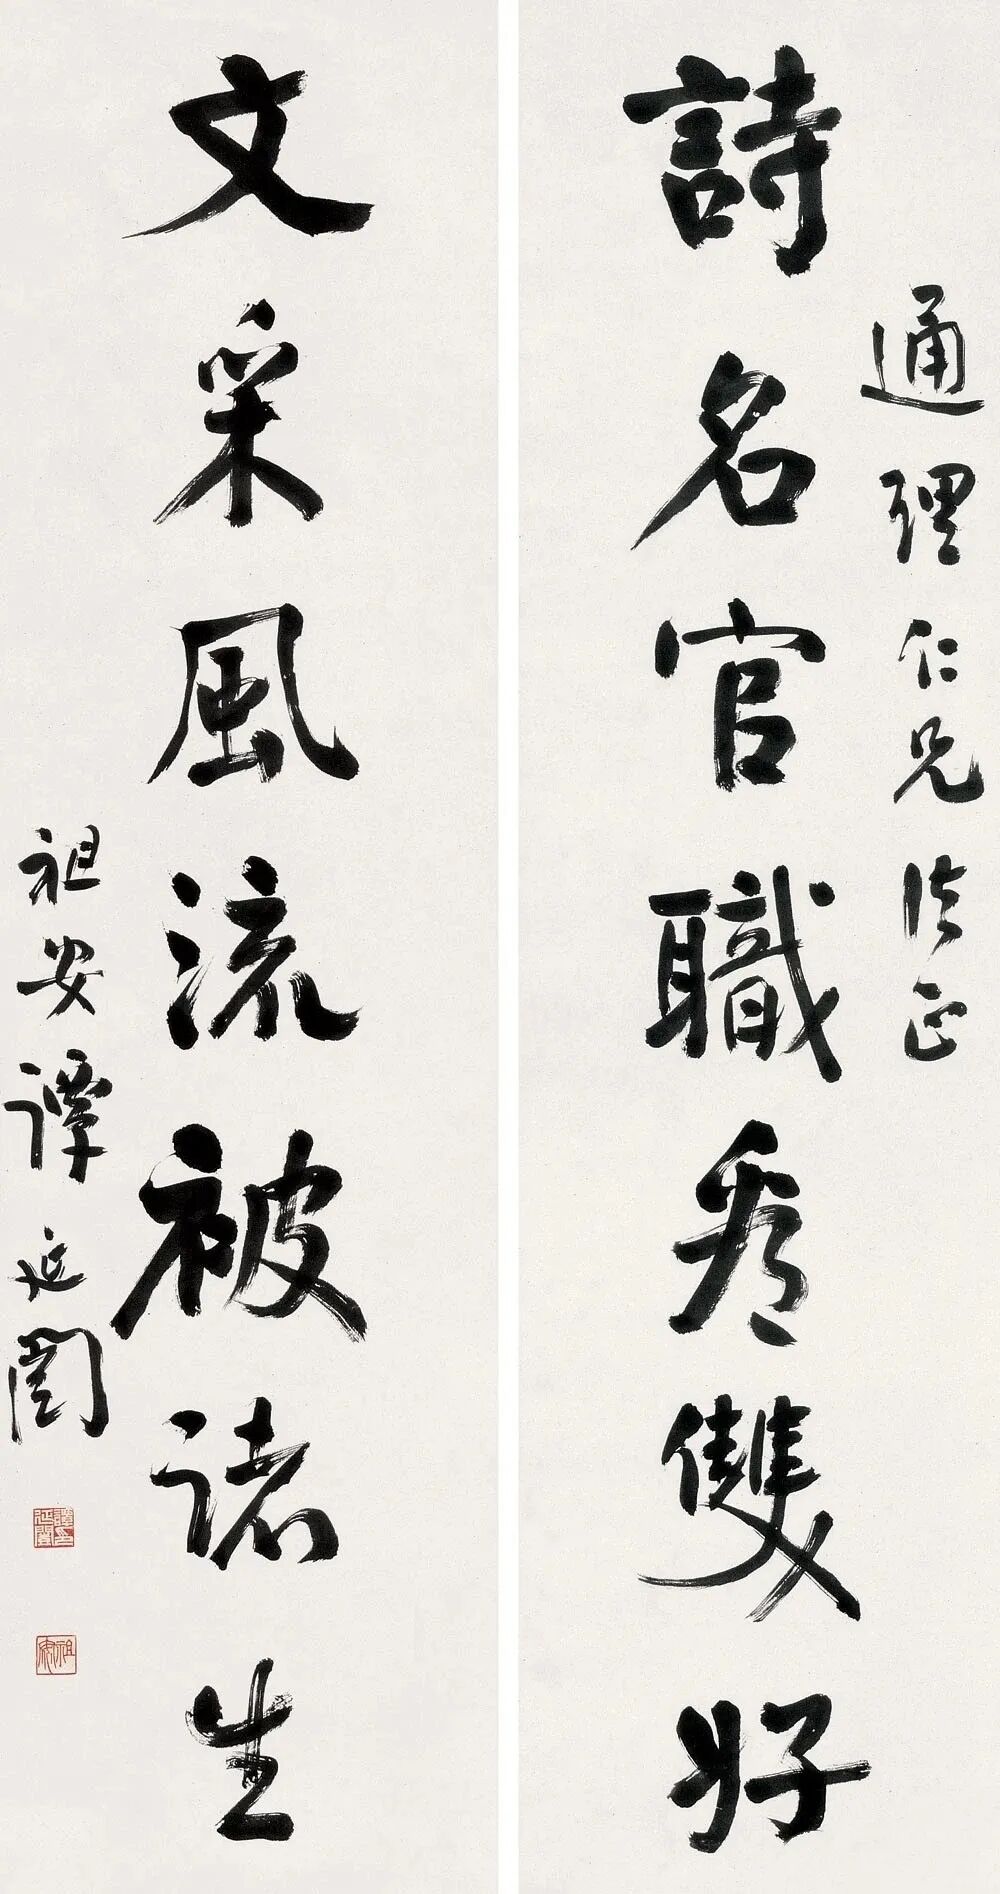 通理仁兄法正
詩名官職看雙好
文采風流被諸生
祖安譚延闓
譚延闓印
祖安